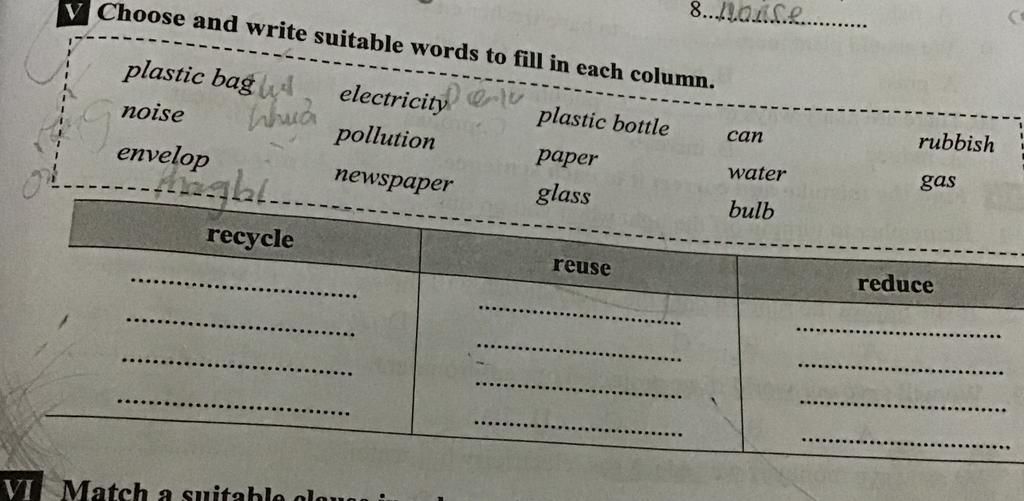 8...noise...............
V Choose and write suitable words to fill in each column.
plastic bag electricity plastic bottle can rubbish
noise nhựa pollution paper water gas
envelop newspaper glass bulb
recycle reuse reduce
VI Match a suitable